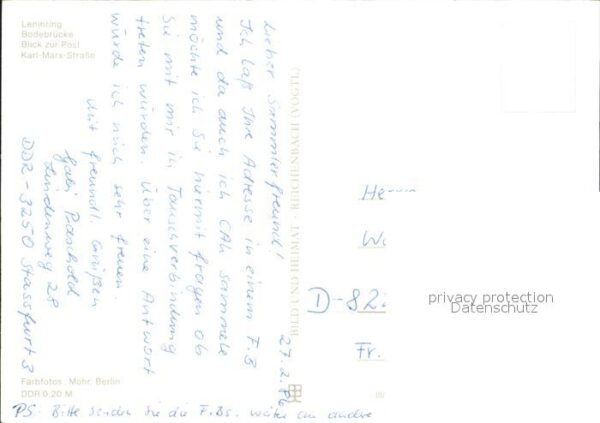 Leninring
Bodebrücke
Blick zur Post
Karl-Marx-Straße
27.2.86
Lieber Sammlerfreund!
Ich laß Ihre Adresse in einem F.B
und da auch ich CAK sammele
möchte ich Sie hiermit fragen ob
Sie mit mir in Tauschverbindung
treten würden. Über eine Antwort
würde ich mich sehr freuen.
Mit freundl. Grüßen
Gabi
Lindenweg 28
DDR-3250 Stassfurt 3
PS. Bitte senden Sie die F.Bs. weiter an andre
BILD UND HEIMAT REICHENBACH (VOGTL)
Farbfotos: Mohr, Berlin
DDR 0,20 M
Herrn
D-82
Fr.
privacy protection
Datenschutz